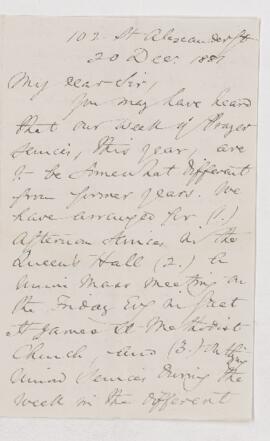 102 St Alexander St
20 Dec. 188
My dear Sir,
You may have heard
that our Week of Prayer
services, this year, are
to be somewhat different
from former years. We
have arranged for (1.)
Afternoon Services in the
Queen's Hall (2.) a
Union Mass meeting on
the Friday Evg in
St James St Methodist
Church, and (3.)
Union Services during the
week in the different